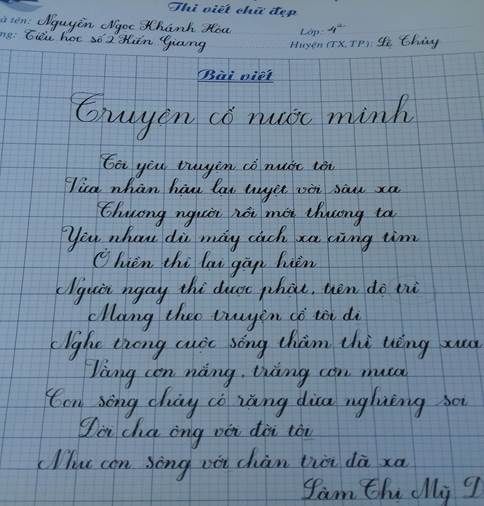 Thi viết chữ đẹp
à tên: Nguyễn Ngọc Khánh Hòa Lớp: 4²
ng: Tiểu học số 2 Kiến Giang Huyện (TX, TP): Lệ Thủy
Bài viết
Truyện cổ nước mình
Tôi yêu truyện cổ nước tôi
Vừa nhân hậu lại tuyệt vời sâu xa
Thương người rồi mới thương ta
Yêu nhau dù mấy cách xa cũng tìm
Ở hiền thì lại gặp hiền
Người ngay thì được phật, tiên độ trì
Mang theo truyện cổ tôi đi
Nghe trong cuộc sống thầm thì tiếng xưa
Vàng cơn nắng, trắng cơn mưa
Con sông chảy có rặng dừa nghiêng soi
Đời cha ông với đời tôi
Như con sông với chân trời đã xa
Lâm Thị Mỹ D